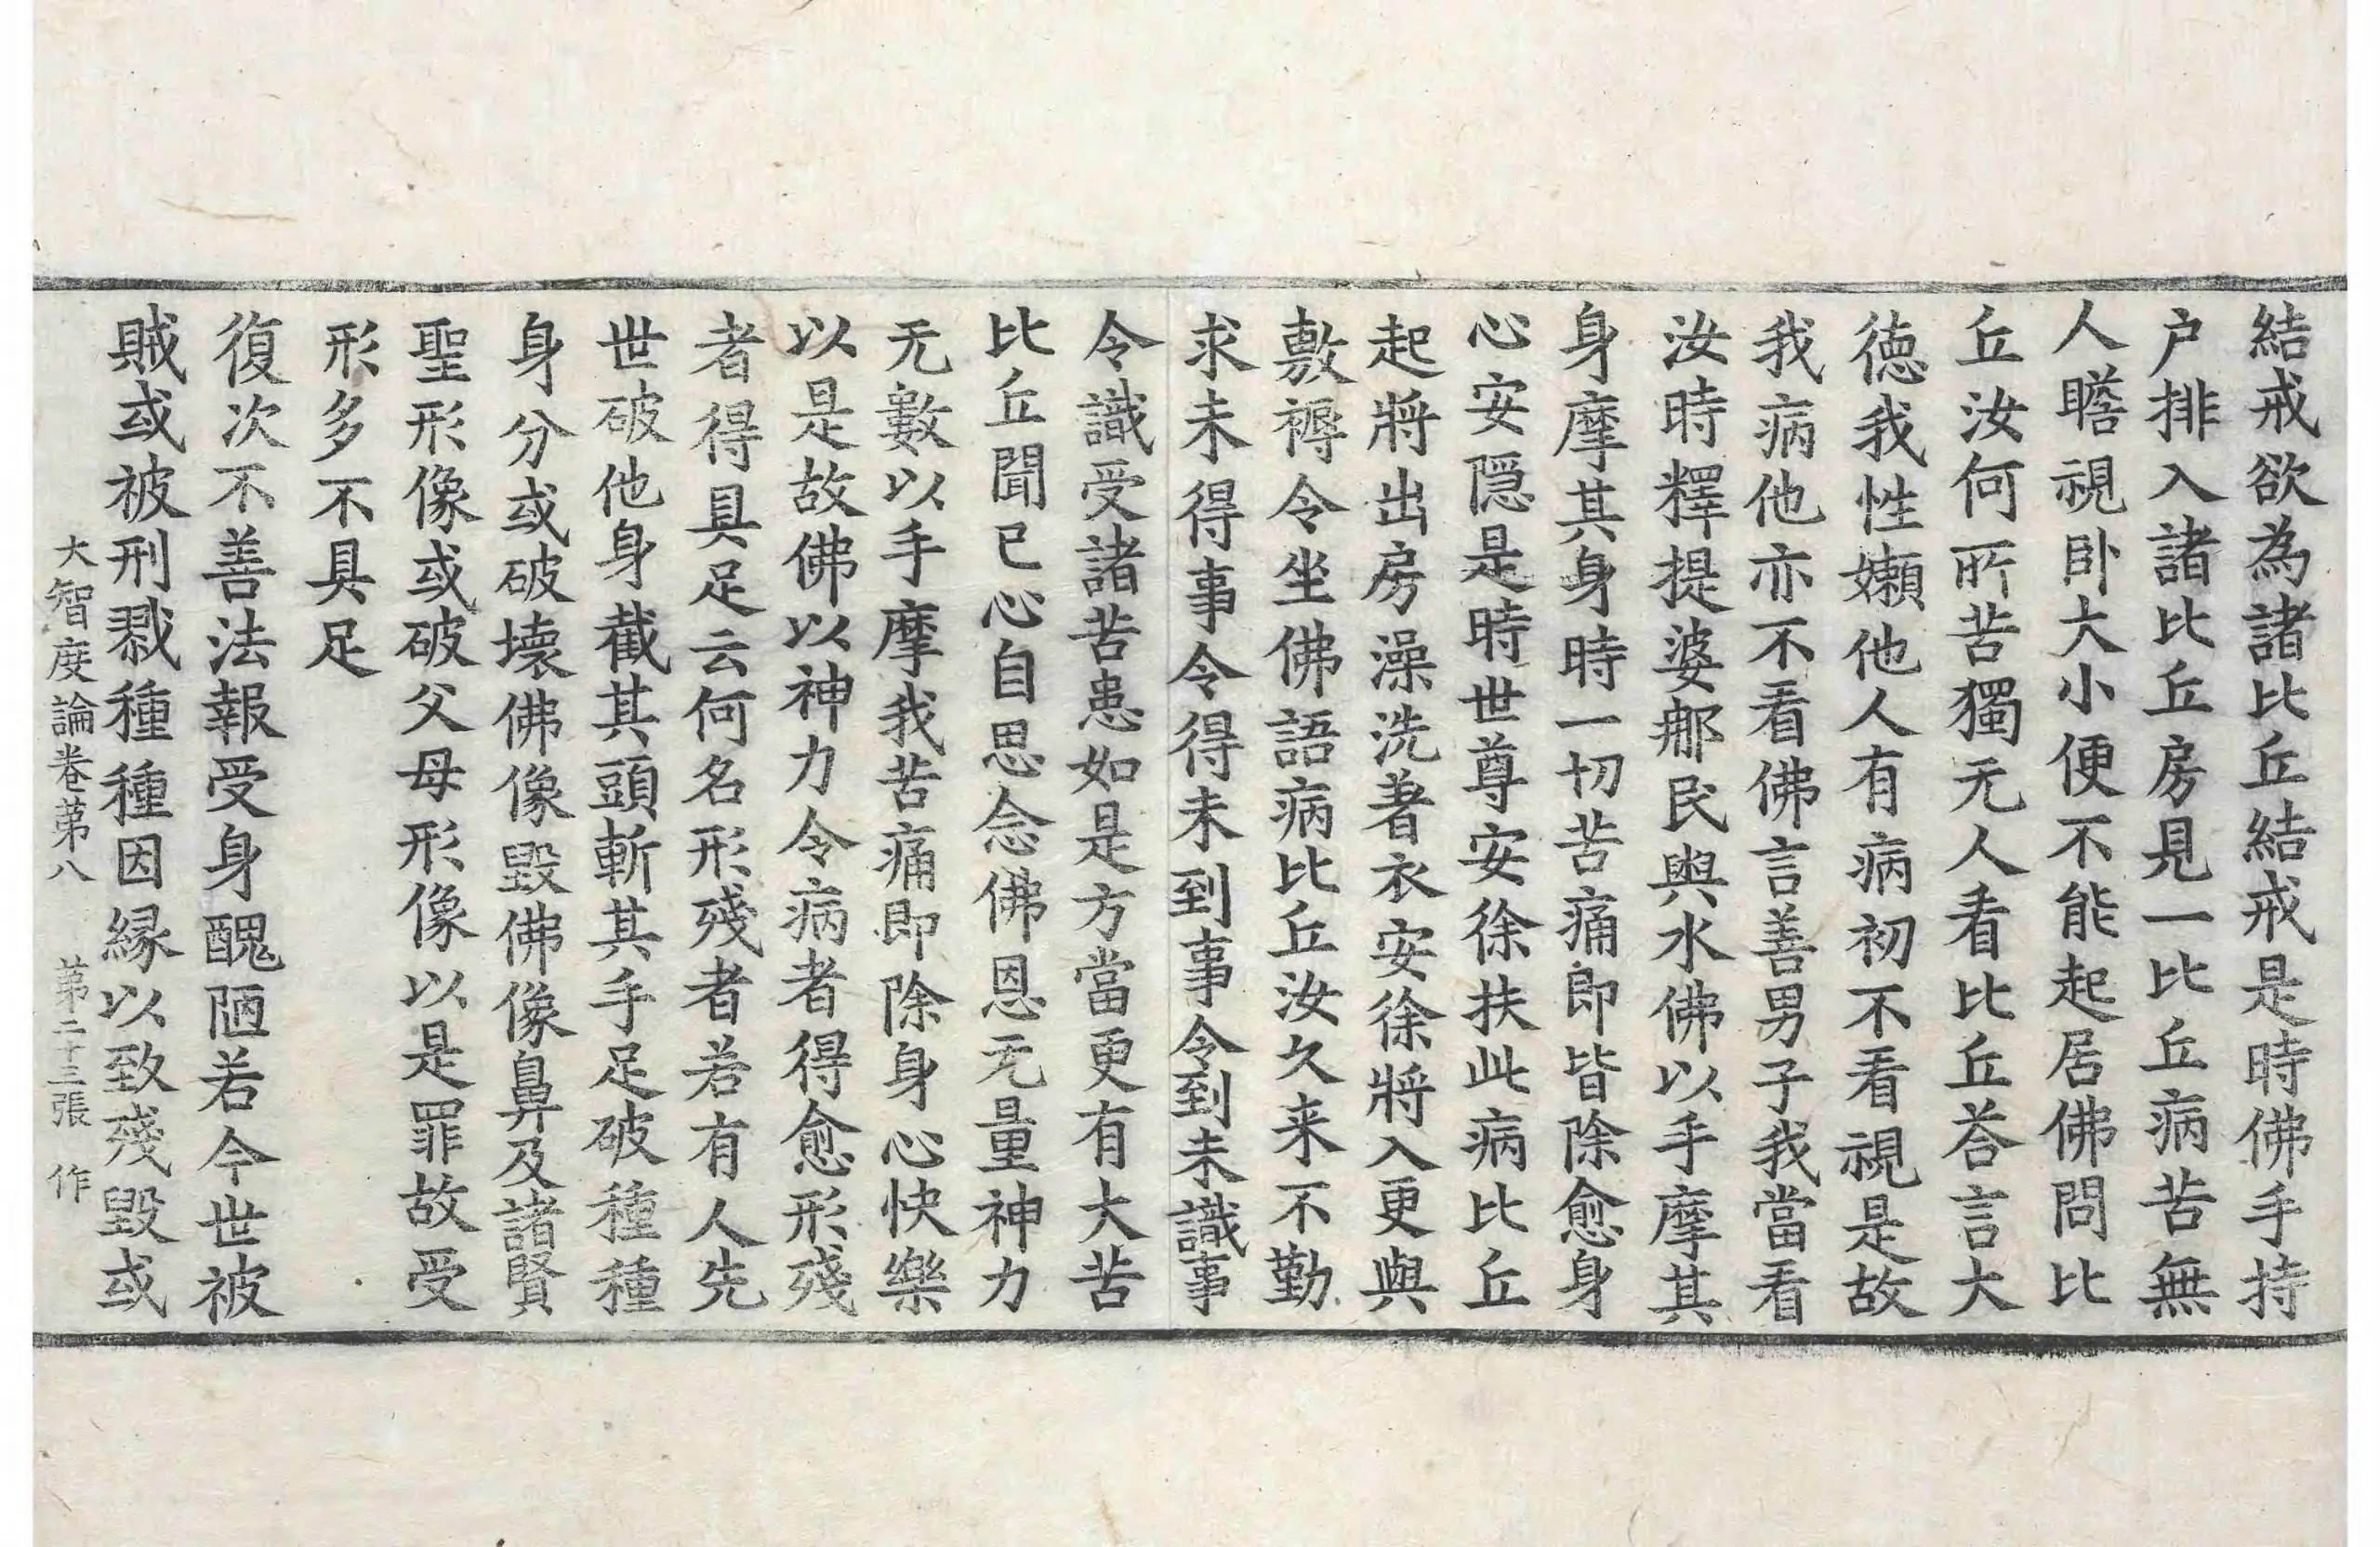 結戒欲為諸比丘結戒是時佛手持
户排入諸比丘房見一比丘病苦無
人瞻視卧大小便不能起居佛問比
丘汝何所苦獨无人看比丘荅言大
徳我性嬾他人有病初不看視是故
我病他亦不看佛言善男子我當看
汝時釋提婆那民與水佛以手摩其
身摩其身時一切苦痛即皆除愈身
心安隱是時世尊安徐扶此病比丘
起將出房澡洗著衣安徐將入更與
敷褥令坐佛語病比丘汝久来不勤
求未得事令得未到事令到未識事
令識受諸苦患如是方當更有大苦
比丘聞已心自思念佛恩无量神力
无數以手摩我苦痛即除身心快樂
以是故佛以神力令病者得愈形殘
者得具足云何名形殘者若有人先
世破他身截其頭斬其手足破種種
身分或破壞佛像毀佛像鼻及諸賢
聖形像或破父母形像以是罪故受
形多不具足
復次不善法報受身醜陋若今世被
賊或被刑戮種種因縁以致殘毀或
大智度論卷第八 第二十三張 作